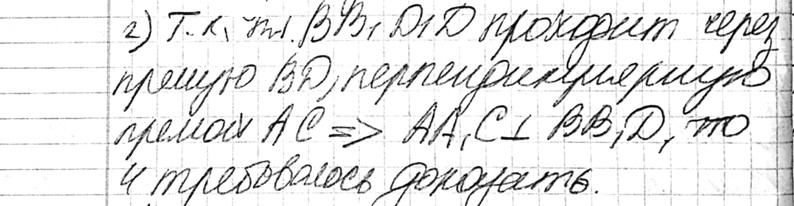 2) Т.к. пл. BB₁D₁D проходит через
прямую BD, перпендикулярную
прямой AC => AA₁C⊥ BB₁D, что
и требовалось доказать.